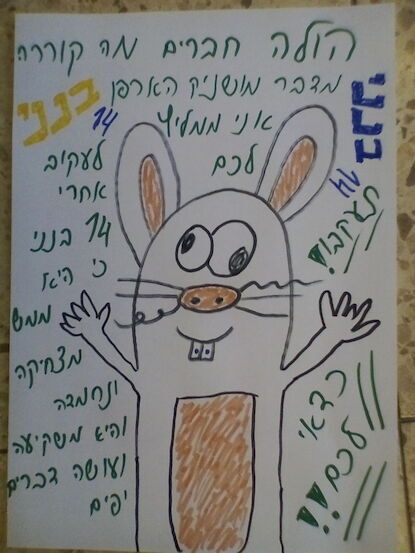 הולה חברים מה קוררה
מדבר מושניק הארפן
בנני 14
בנני 14
אני ממליץ
לכם
לעקוב
אחרי
14 בנני
כי היא
ממש
מצחיקה
ונחמדה
והיא משקיעה
ועושה דברים
יפים
תעקבו!!
כדאי
לכם!!